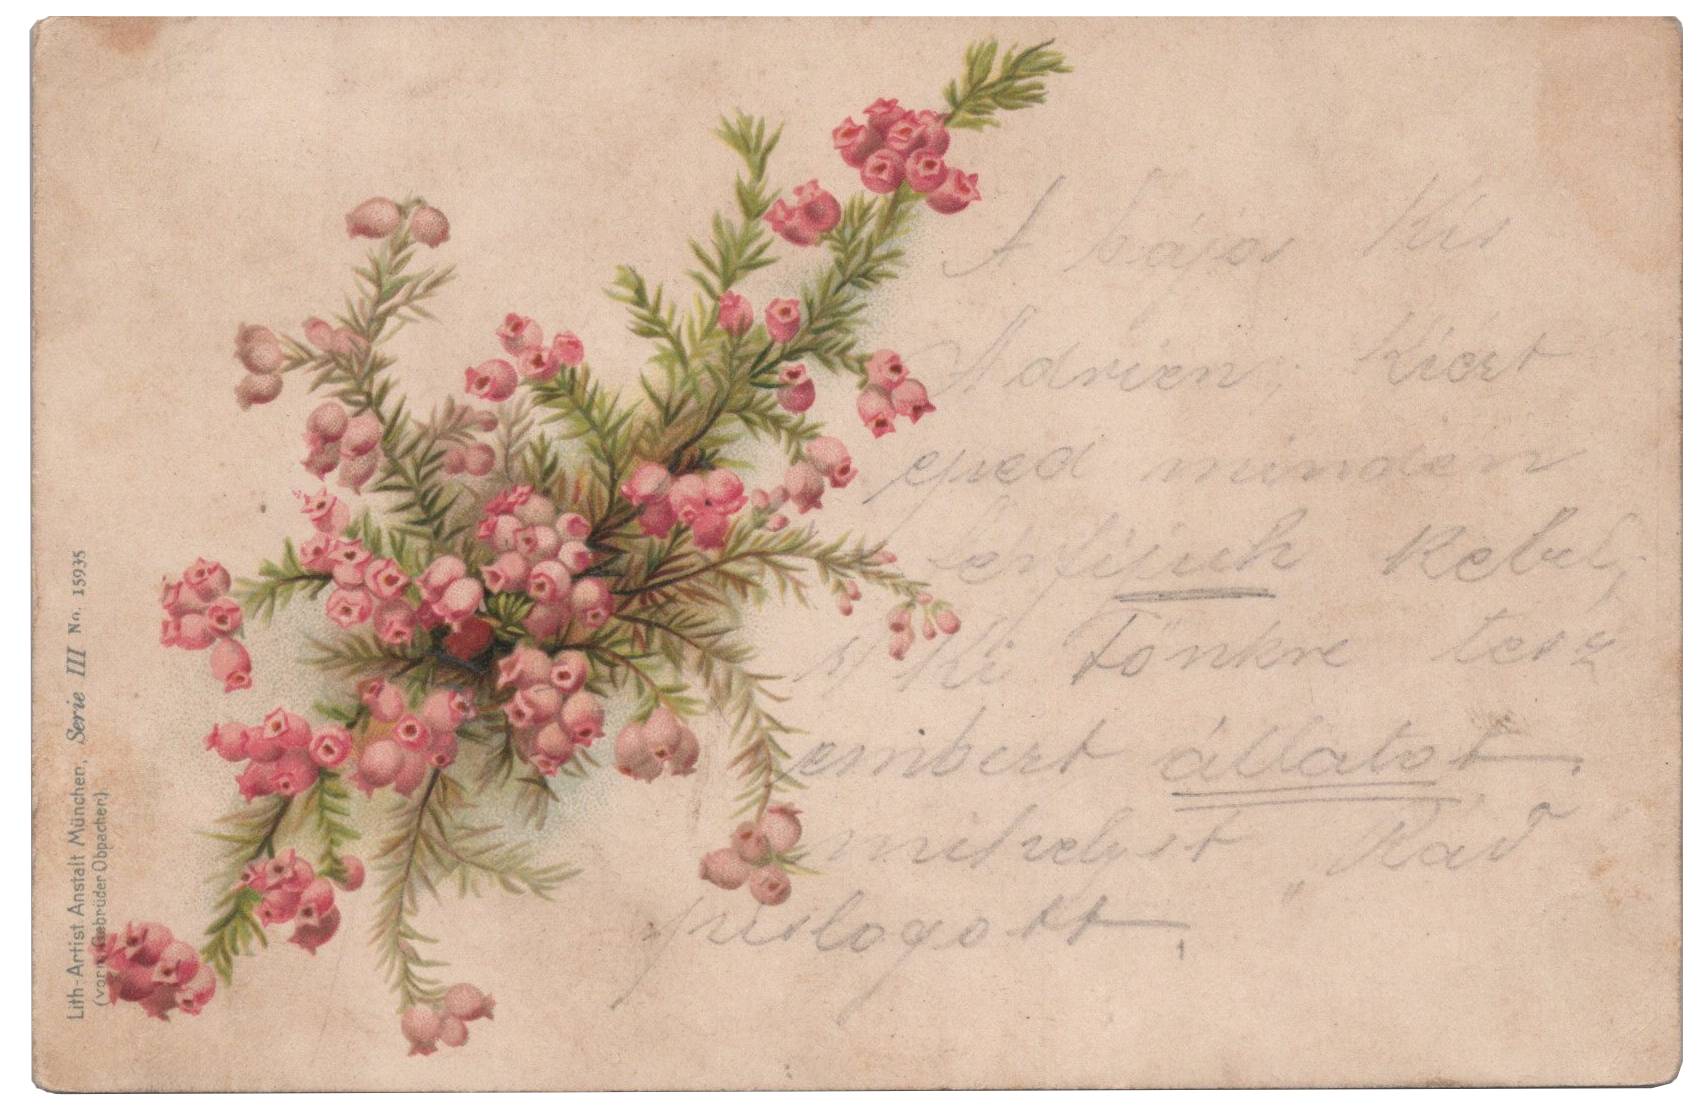 A bájos Kis
Adrien, Kiért
eped minden
férfiúnk Kebel,
s Ki Tönkre tesz
embert állatot
mihelyst Rád
pislogott
Lith-Artist. Anstalt München, Serie III No. 15935
(vorm. Gebrüder Obpacher)